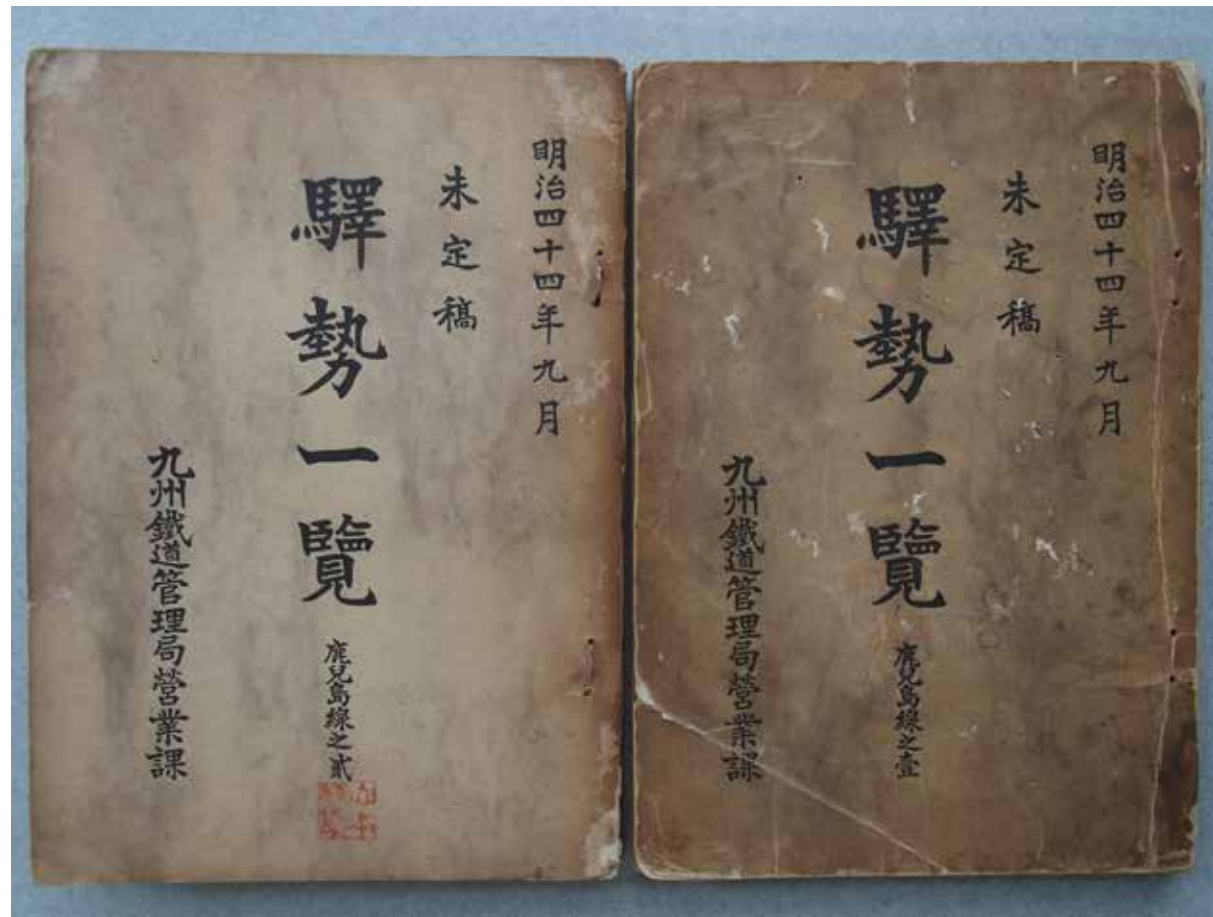 明治四十四年九月
未定稿
驛勢一覽
鹿兒島線之壹
九州鐵道管理局營業課
明治四十四年九月
未定稿
驛勢一覽
鹿兒島線之貳
九州鐵道管理局營業課